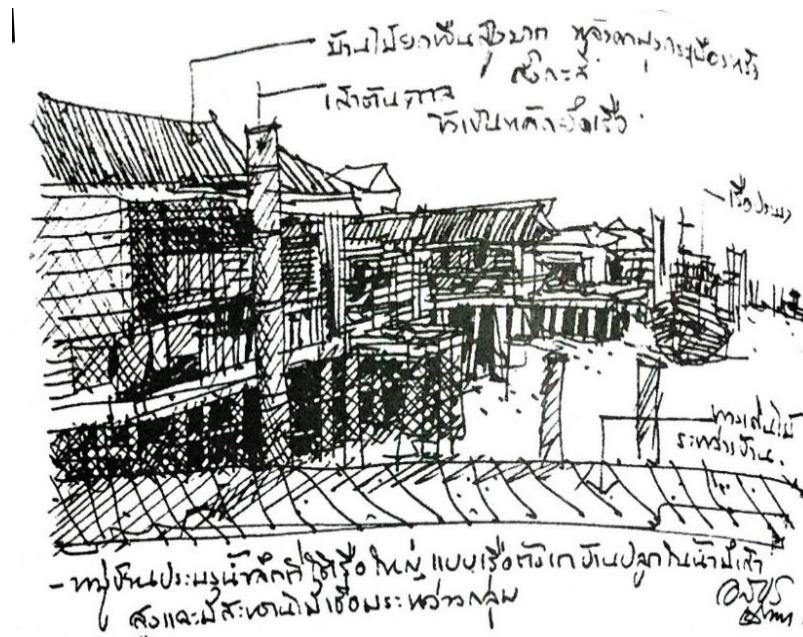 บ้านไม้ยกพื้นสูงมาก หลังคามุงกระเบื้องหรือ
สังกะสี
เสาต้นตาล
ใช้เป็นหลักยึดเรือ
เรือประมง
ทางเดินไม้
ระหว่างบ้าน
- หมู่บ้านประมงน้ำลึกที่ใช้เรือใหญ่ แบบเรือตังเก บ้านปลูกในน้ำมีเสา
สูงและมีสะพานไม้เชื่อมระหว่างกลุ่ม